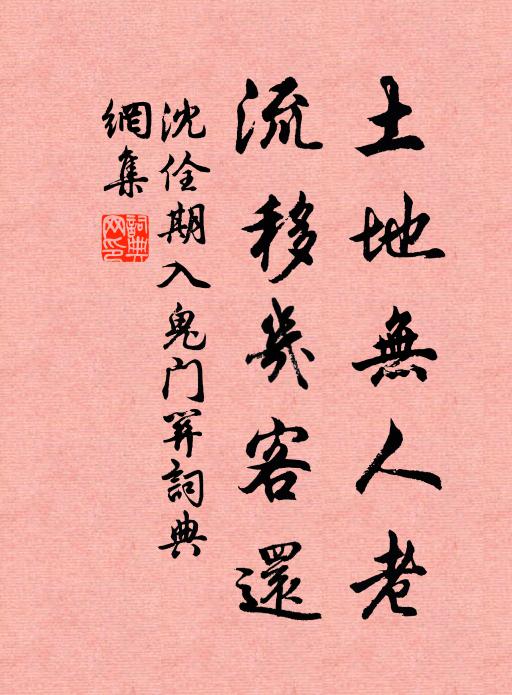 土地無人老
流移幾客還
沈佺期入鬼门關詞典
網集
詞典網印